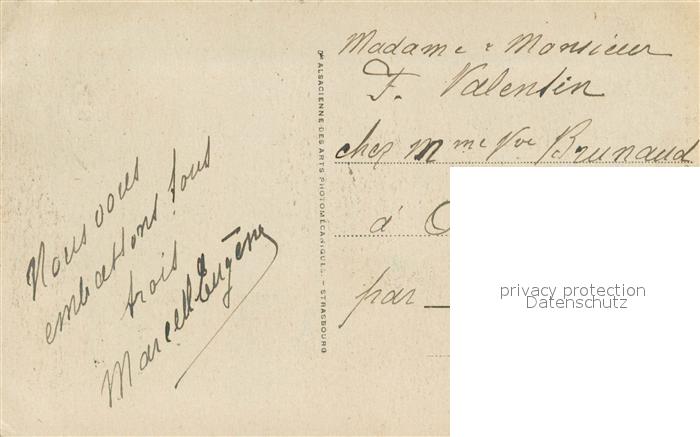 Nous vous
embrassons tous
trois
Marcelle Eugène
Cie ALSACIENNE DES ARTS PHOTOMÉCANIQUES. - STRASBOURG
Madame & Monsieur
F. Valentin
chez Mme Vve Brunaud
à
par
privacy protection
Datenschutz